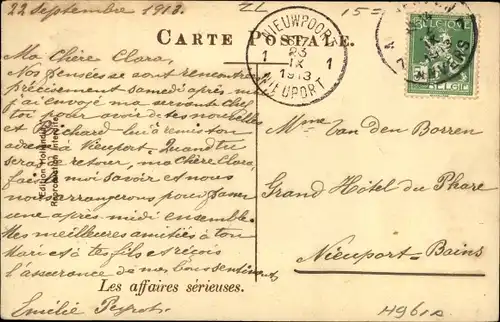 22 septembre 1913.
CARTE POSTALE.
Ma Chère Clara,
Nos pensées se sont rencontré
précisement samedi après midi
j'ai envoyé ma servante chez
toi pour avoir des nouvelles et
Richard lui a remis ton
adresse à Nieuport. Quand tu
seras de retour, ma chère Clara,
fais moi savoir et nous
nous arrangerons pour passer
une après midi ensemble.
Mes meilleures amitiés à ton
Mari et à tes fils et reçois
l'assurance de nos bons sentiments
Emilie
Les affaires sérieuses.
Edition
Reproduction interdite
NIEUWPOORT
1 23 1
IX
1913
NIEUPORT
15=
BELGIQUE
BELGIE
ANVERS
Mme Van den Borren
Grand Hôtel du Phare
Nieuport-Bains